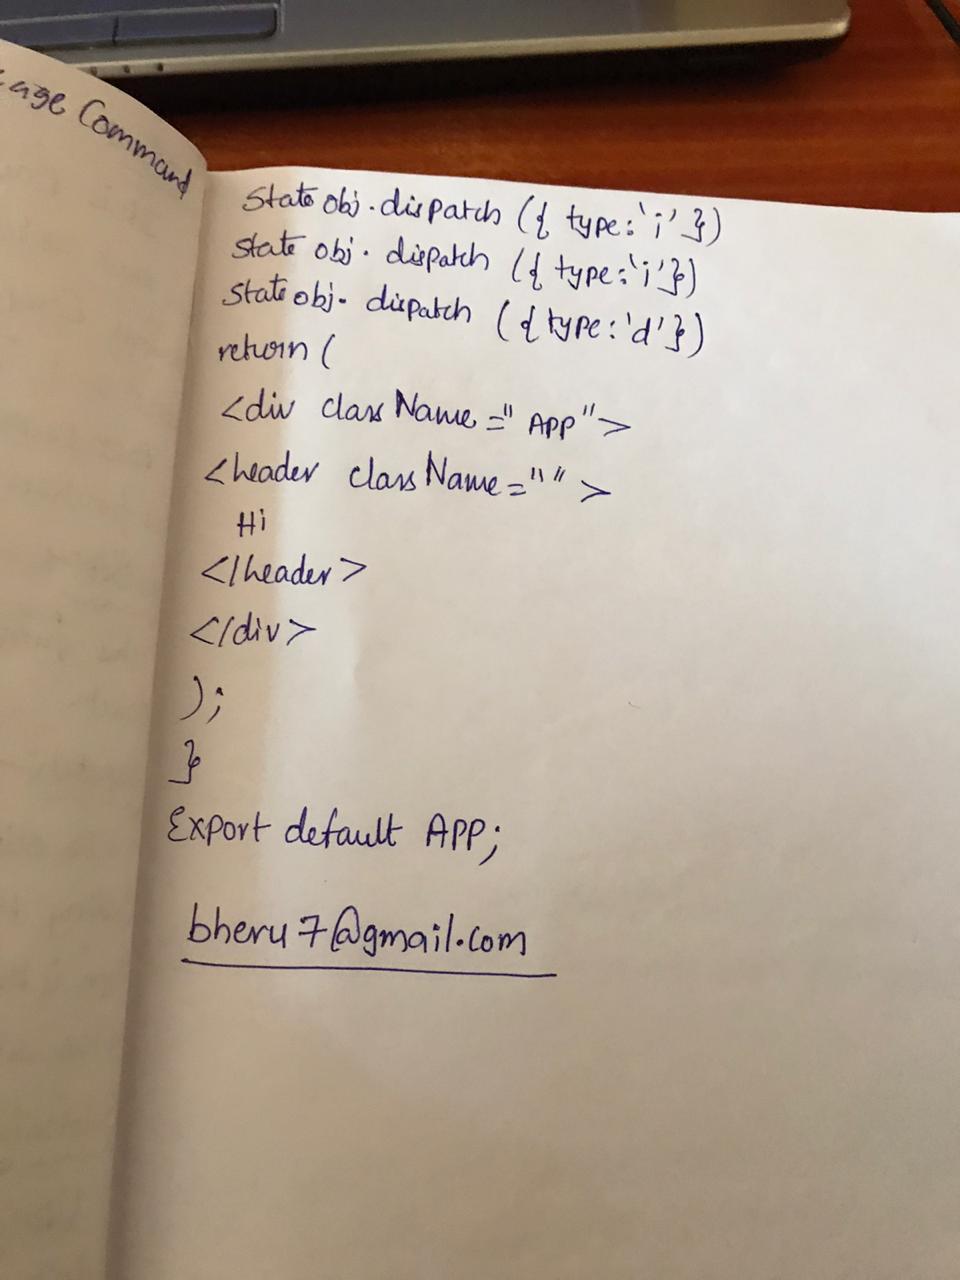 Command
State obj.dispatch ({ type:'i' })
state obj. dispatch ({ type:'i'})
State obj. dispatch ({ type:'d'})
return (
<div className=" APP">
<header className="">
Hi
</header>
</div>
);
}
Export default APP;
bheru7@gmail.com